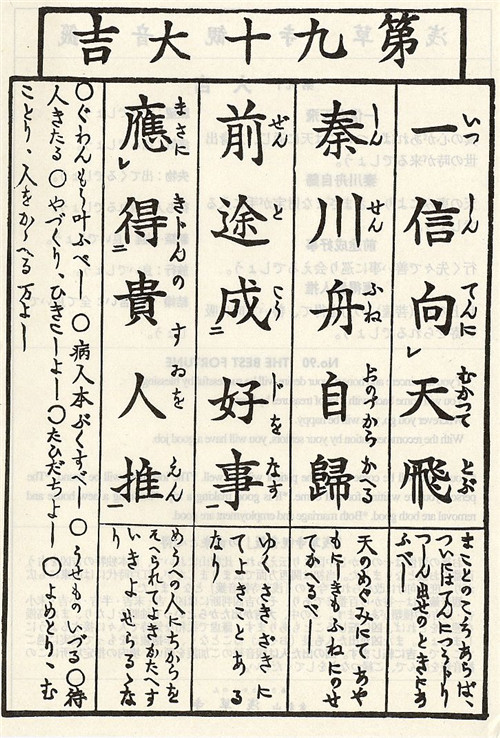 第九十大吉
一信向天飛
いつしんてんにむかつてとぶ
秦川舟自歸
しんせんふねおのづからかへる
前途成好事
ぜんとこうじをなす
應得貴人推
まさにきじんのすおをえん
まことのこゝろあらば、
ついにはてんにつうじり
つしん出せのときにあ
ふべし
天のめぐみにてあや
ふねにのせ
てかへるべし
ゆくさきざきに
てよきことある
なり
めうへの人にちからを
そへられ、よきかたへす
いきよせらるゝな
り
〇ぐわんもう叶ふべし〇病人本ぶくすべし〇うせものいづる〇待
人きたる〇やづくり、ひきこしよし〇たびだちよし〇よめとり、む
ことり、人をかゝへる万よし
No.90 THE BEST FORTUNE